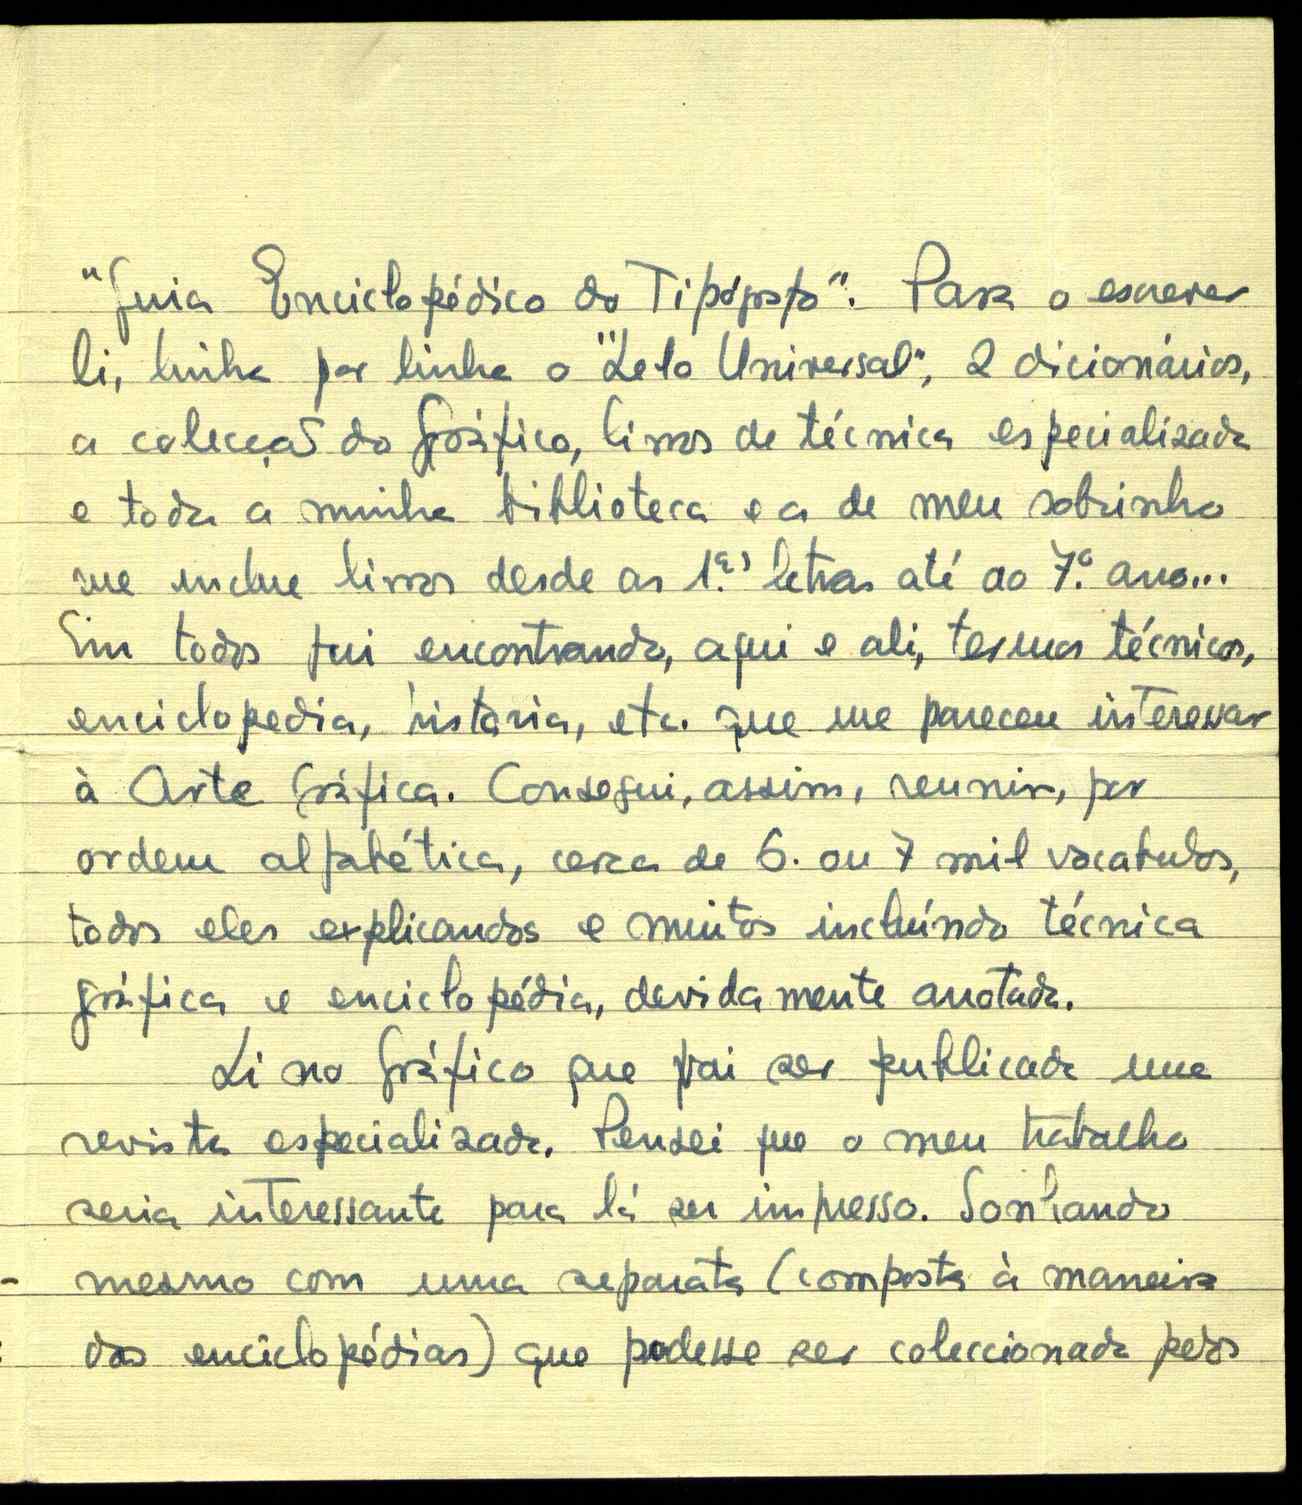 "Guia Enciclopédico do Tipógrafo". Para o escrever
li, linha por linha o "Lelo Universal", 2 dicionários,
a colecção do Gráfico, livros de técnica especializada
e toda a minha biblioteca e a de meu sobrinho
que inclue livros desde as 1.ªs letras até ao 7.º ano...
Em todos fui encontrando, aqui e ali, termos técnicos,
enciclopedia, historia, etc. que me pareceu interessar
à Arte Gráfica. Consegui, assim, reunir, por
ordem alfabética, cerca de 6. ou 7 mil vocabulos,
todos eles explicandos e muitos incluíndo técnica
gráfica e enciclopédia, devidamente anotada.
Li no Gráfico que vai ser publicada uma
revista especializada. Pensei que o meu trabalho
seria interessante para lá ser impresso. Sonhando
mesmo com uma separata (composta à maneira
das enciclopédias) que podesse ser coleccionada pelos